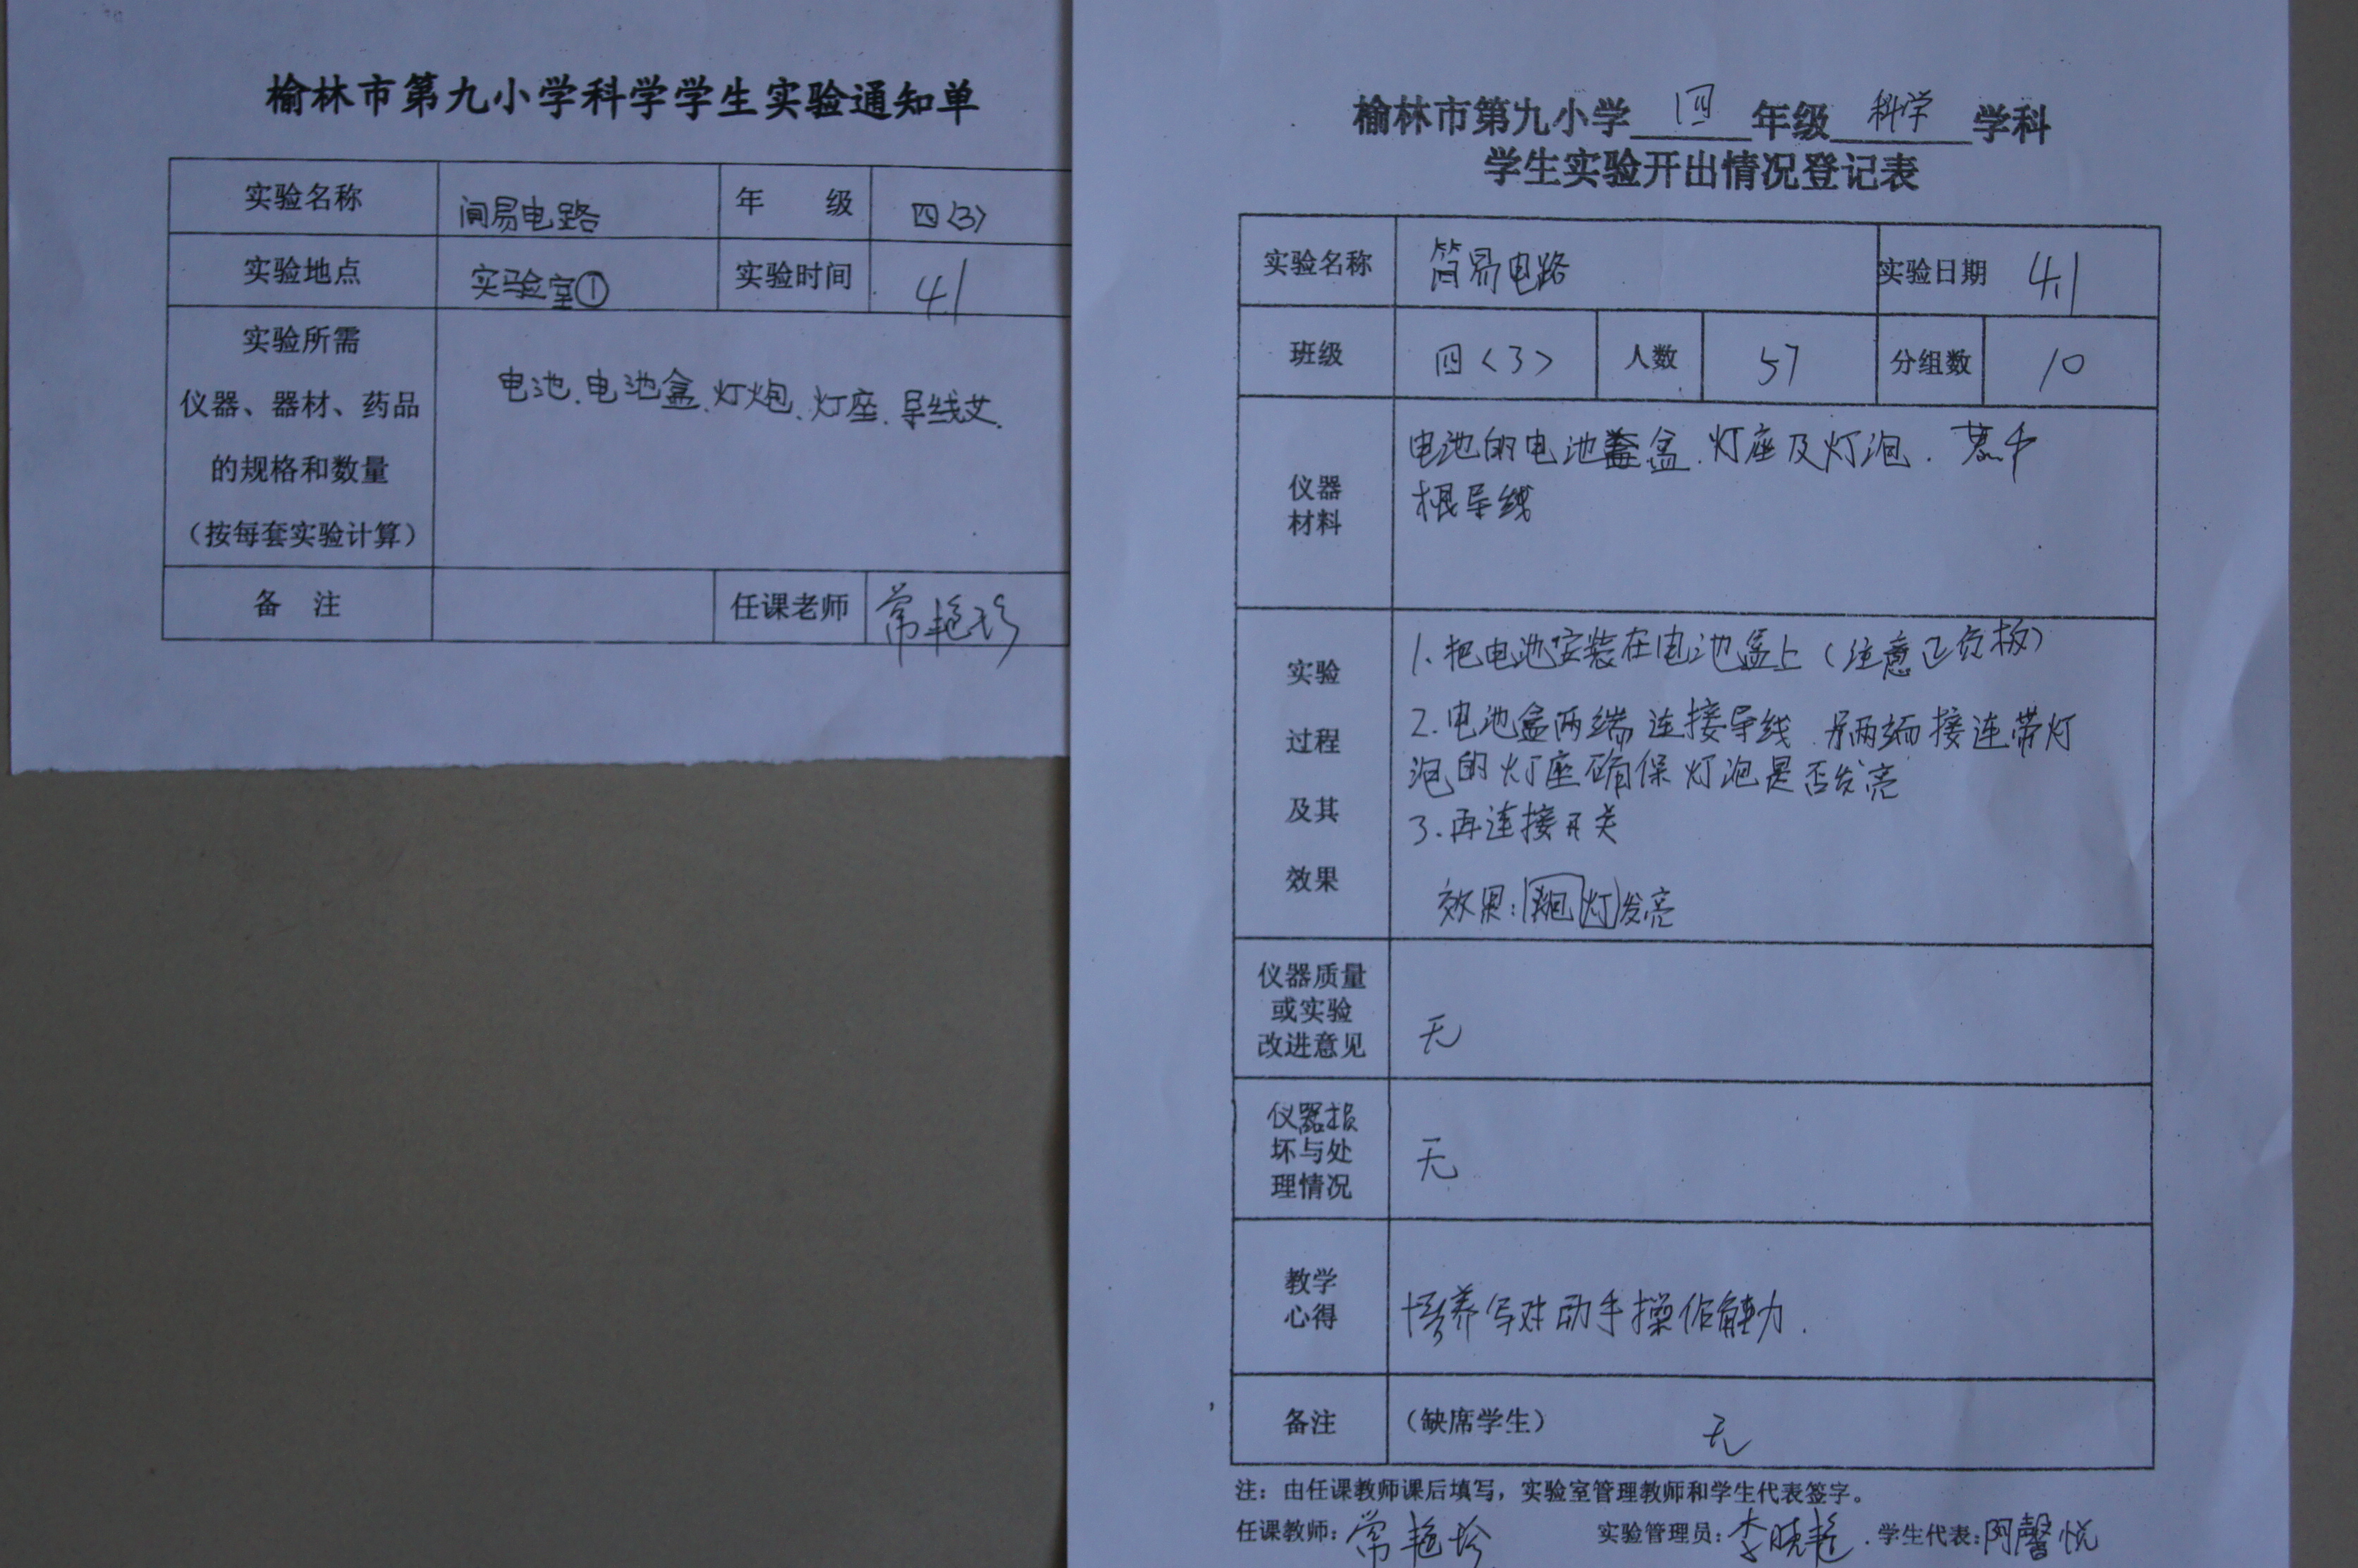 榆林市第九小学科学学生实验通知单
实验名称 间易电路 年 级 四(3)
实验地点 实验室① 实验时间 4.1
实验所需
仪器、器材、药品
的规格和数量
(按每套实验计算)
电池、电池盒、灯炮、灯座、导线
备 注 任课老师 常艳珍
榆林市第九小学 四 年级 科学 学科
学生实验开出情况登记表
实验名称 简易电路 实验日期 4.1
班级 四<3> 人数 57 分组数 10
仪器
材料
电池的电池盒、灯座及灯泡、若干
根导线
实验
过程
及其
效果
1、把电池安装在电池盒上(注意正负极)
2.电池盒两端连接导线 另两端接连带灯
泡的灯座确保灯泡是否发亮
3.再连接开关
效果:泡灯发亮
仪器质量
或实验
改进意见
无
仪器损
坏与处
理情况
无
教学
心得
培养 动手操作能力.
备注 (缺席学生) 无
注:由任课教师课后填写,实验室管理教师和学生代表签字。
任课教师:常艳珍 实验管理员:李晓艳 学生代表:阿馨悦